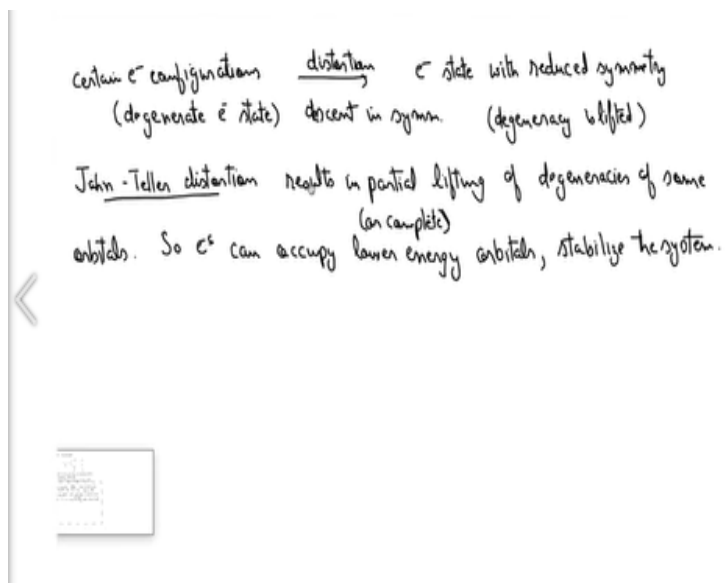 certain e⁻ configurations distortion e⁻ state with reduced symmetry
(degenerate e⁻ state) descent in symm. (degeneracy is lifted)
Jahn-Teller distortion results in partial lifting of degeneracies of some
(or complete)
orbitals. So e⁻s can occupy lower energy orbitals, stabilize the system.